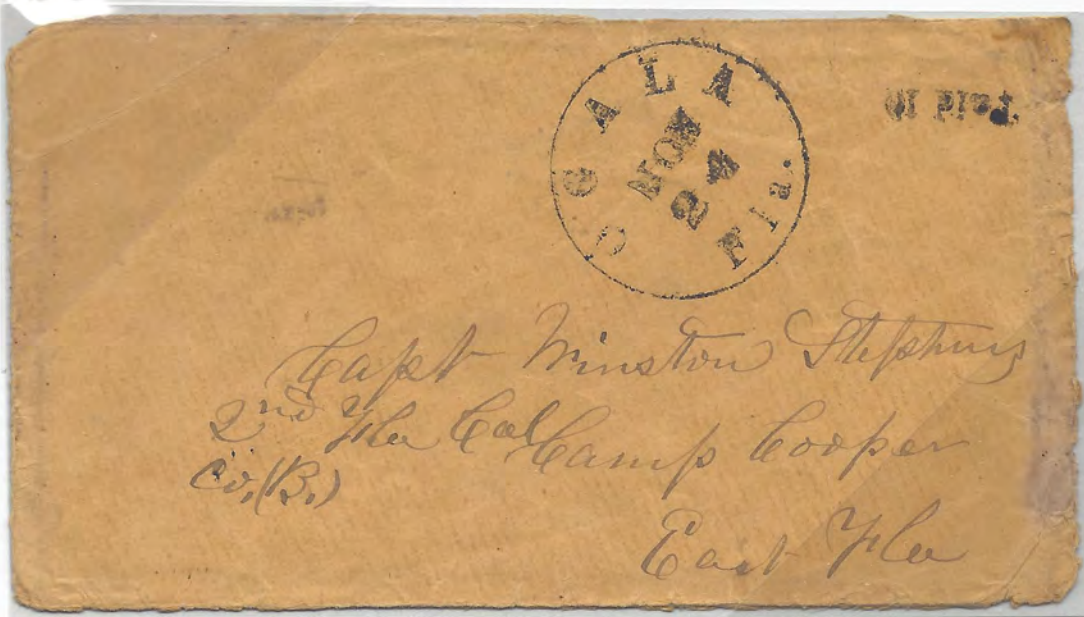 OCALA
NOV
24
Fla.
Paid 10
Capt Winston Stephens
2nd Fla Cal Camp Cooper
Co. (B.)
East Fla